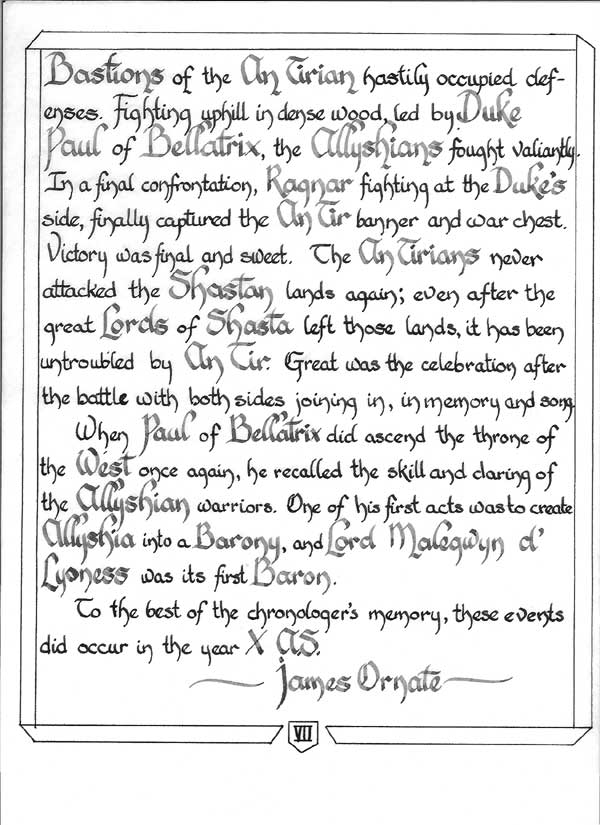 Bastions of the An Tirian hastily occupied def-
enses. Fighting uphill in dense wood, led by Duke
Paul of Bellatrix, the Allyshians fought valiantly.
In a final confrontation, Ragnar fighting at the Duke's
side, finally captured the An Tir banner and war chest.
Victory was final and sweet. The An Tirians never
attacked the Shastan lands again; even after the
great Lords of Shasta left those lands, it has been
untroubled by An Tir. Great was the celebration after
the battle with both sides joining in, in memory and song.
When Paul of Bellatrix did ascend the throne of
the West once again, he recalled the skill and daring of
the Allyshian warriors. One of his first acts was to create
Allyshia into a Barony, and Lord Malegwyn d'
Lyoness was its first Baron.
To the best of the chronologer's memory, these events
did occur in the year X A.S.
James Ornate
VII